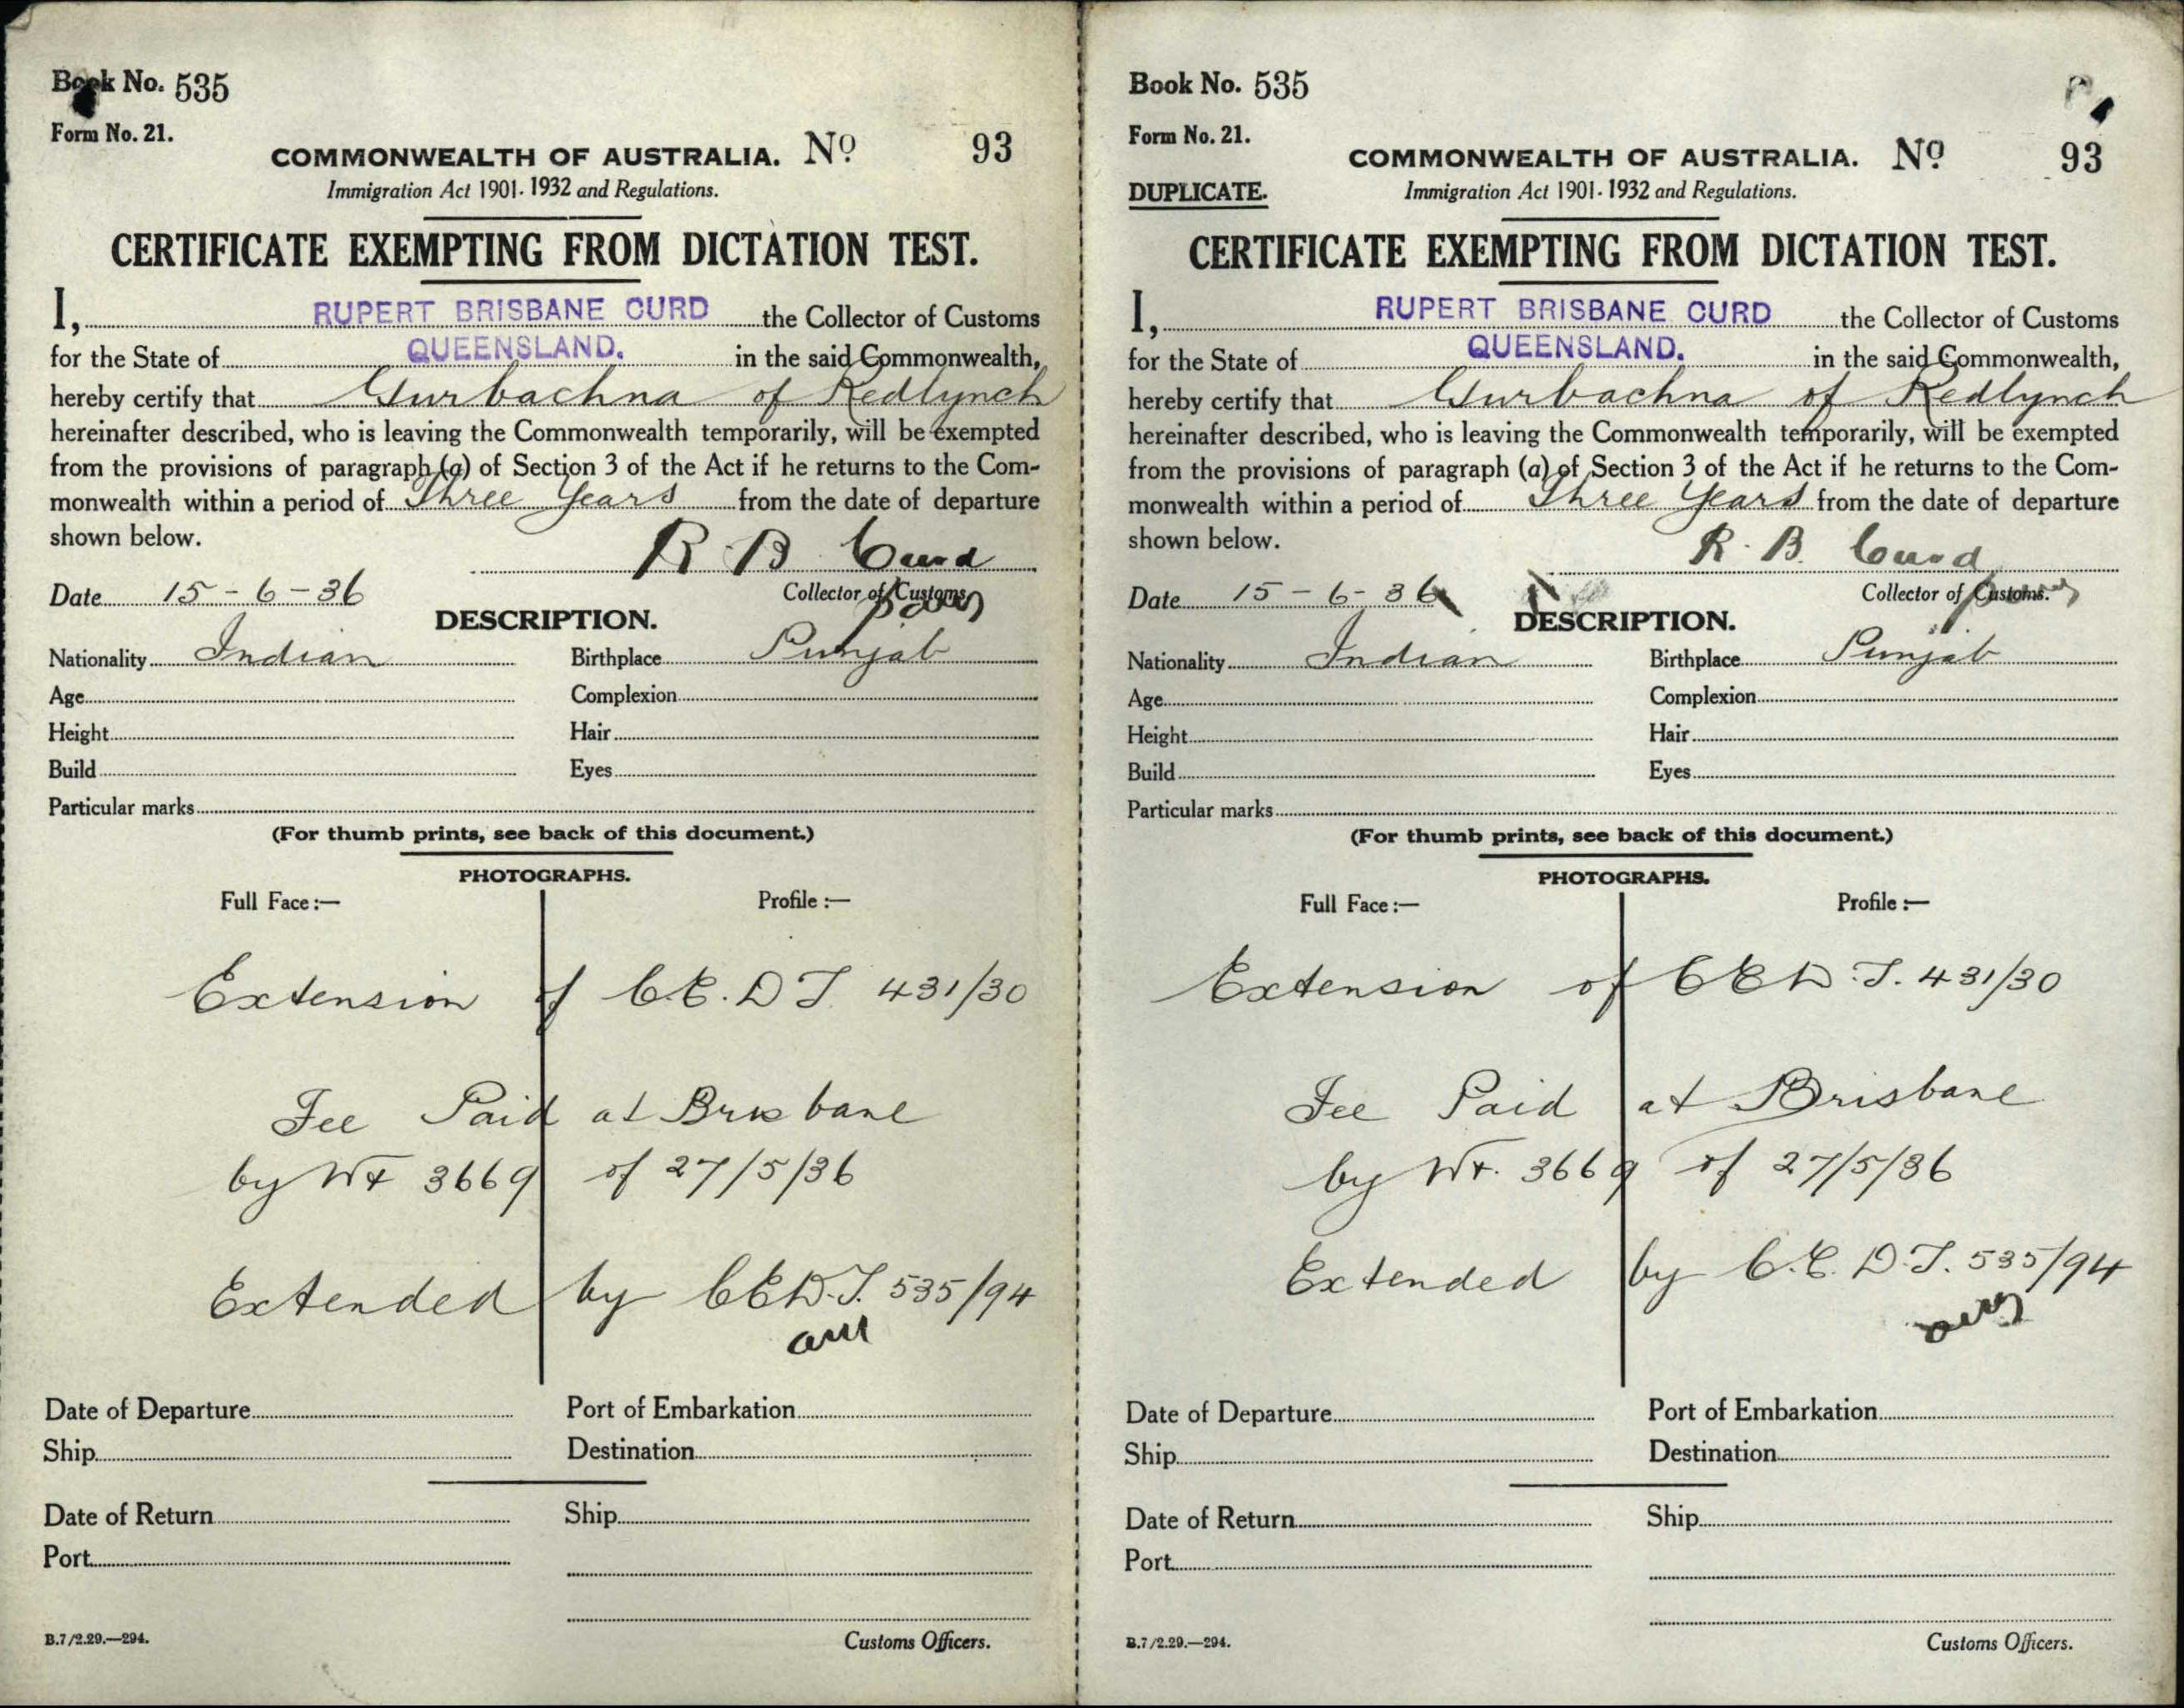 Book No. 535
Form No. 21.
COMMONWEALTH OF AUSTRALIA. No 93
Immigration Act 1901-1932 and Regulations.
CERTIFICATE EXEMPTING FROM DICTATION TEST.
I, RUPERT BRISBANE CURD the Collector of Customs
for the State of QUEENSLAND. in the said Commonwealth,
hereby certify that Gurbachna of Redlynch
hereinafter described, who is leaving the Commonwealth temporarily, will be exempted
from the provisions of paragraph (a) of Section 3 of the Act if he returns to the Com-
monwealth within a period of Three Years from the date of departure
shown below.
R B Curd
Date 15-6-36 Collector of Customs
DESCRIPTION.
Nationality Indian Birthplace Punjab
Age Complexion
Height Hair
Build Eyes
Particular marks
(For thumb prints, see back of this document.)
PHOTOGRAPHS.
Full Face:— Profile:—
Extension of C.E.D T. 431/30
Fee Paid at Brisbane
by Wt 3669 of 27/5/36
Extended by CED.T. 535/94
Date of Departure Port of Embarkation
Ship Destination
Date of Return Ship
Port
B.7/2.29.—294. Customs Officers.
Book No. 535
Form No. 21.
COMMONWEALTH OF AUSTRALIA. No 93
DUPLICATE. Immigration Act 1901-1932 and Regulations.
CERTIFICATE EXEMPTING FROM DICTATION TEST.
I, RUPERT BRISBANE CURD the Collector of Customs
for the State of QUEENSLAND. in the said Commonwealth,
hereby certify that Gurbachna of Redlynch
hereinafter described, who is leaving the Commonwealth temporarily, will be exempted
from the provisions of paragraph (a) of Section 3 of the Act if he returns to the Com-
monwealth within a period of Three Years from the date of departure
shown below.
R. B. Curd
Date 15-6-36 Collector of Customs.
DESCRIPTION.
Nationality Indian Birthplace Punjab
Age Complexion
Height Hair
Build Eyes
Particular marks
(For thumb prints, see back of this document.)
PHOTOGRAPHS.
Full Face:— Profile:—
Extension of CED.T. 431/30
Fee Paid at Brisbane
by Wt. 3669 of 27/5/36
Extended by C.E.D.T. 535/94
Date of Departure Port of Embarkation
Ship Destination
Date of Return Ship
Port
B.7/2.29.—294. Customs Officers.